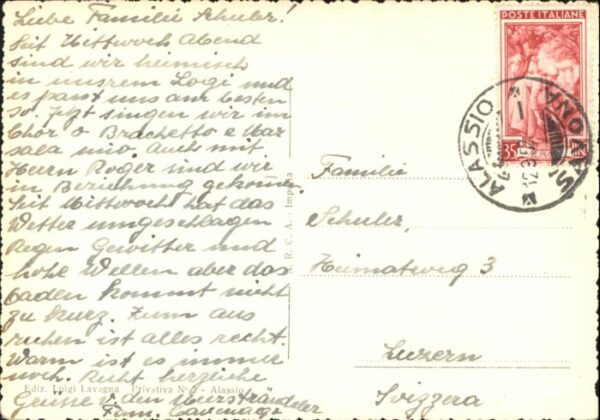 Liebe Familie Schuler!
Seit Mittwoch abend
sind wir heimisch
in unserem Logi und
es passt uns am besten
so. Jetzt singen wir im
Chor o Brachetto e Mar
sala mio. Auch mit
Herrn Roger sind wir
in Beziehung gekomm.
Seit Mittwoch hat das
Wetter umgeschlagen
Regen Gewitter und
hohe Wellen aber das
baden kommt nicht
zu kurz. Zum aus
ruhen ist alles recht.
Warm ist es immer
noch. Recht herzliche
Grüsse v. den Meerstrandeler
Fam.
Ediz. Luigi Lavagna - Privativa N° - Alassio
R. C. A. - Imperia
POSTE ITALIANE
35
ALASSIO
SAVONA
Familie
Schuler,
Heimatweg 3
Luzern
Svizzera